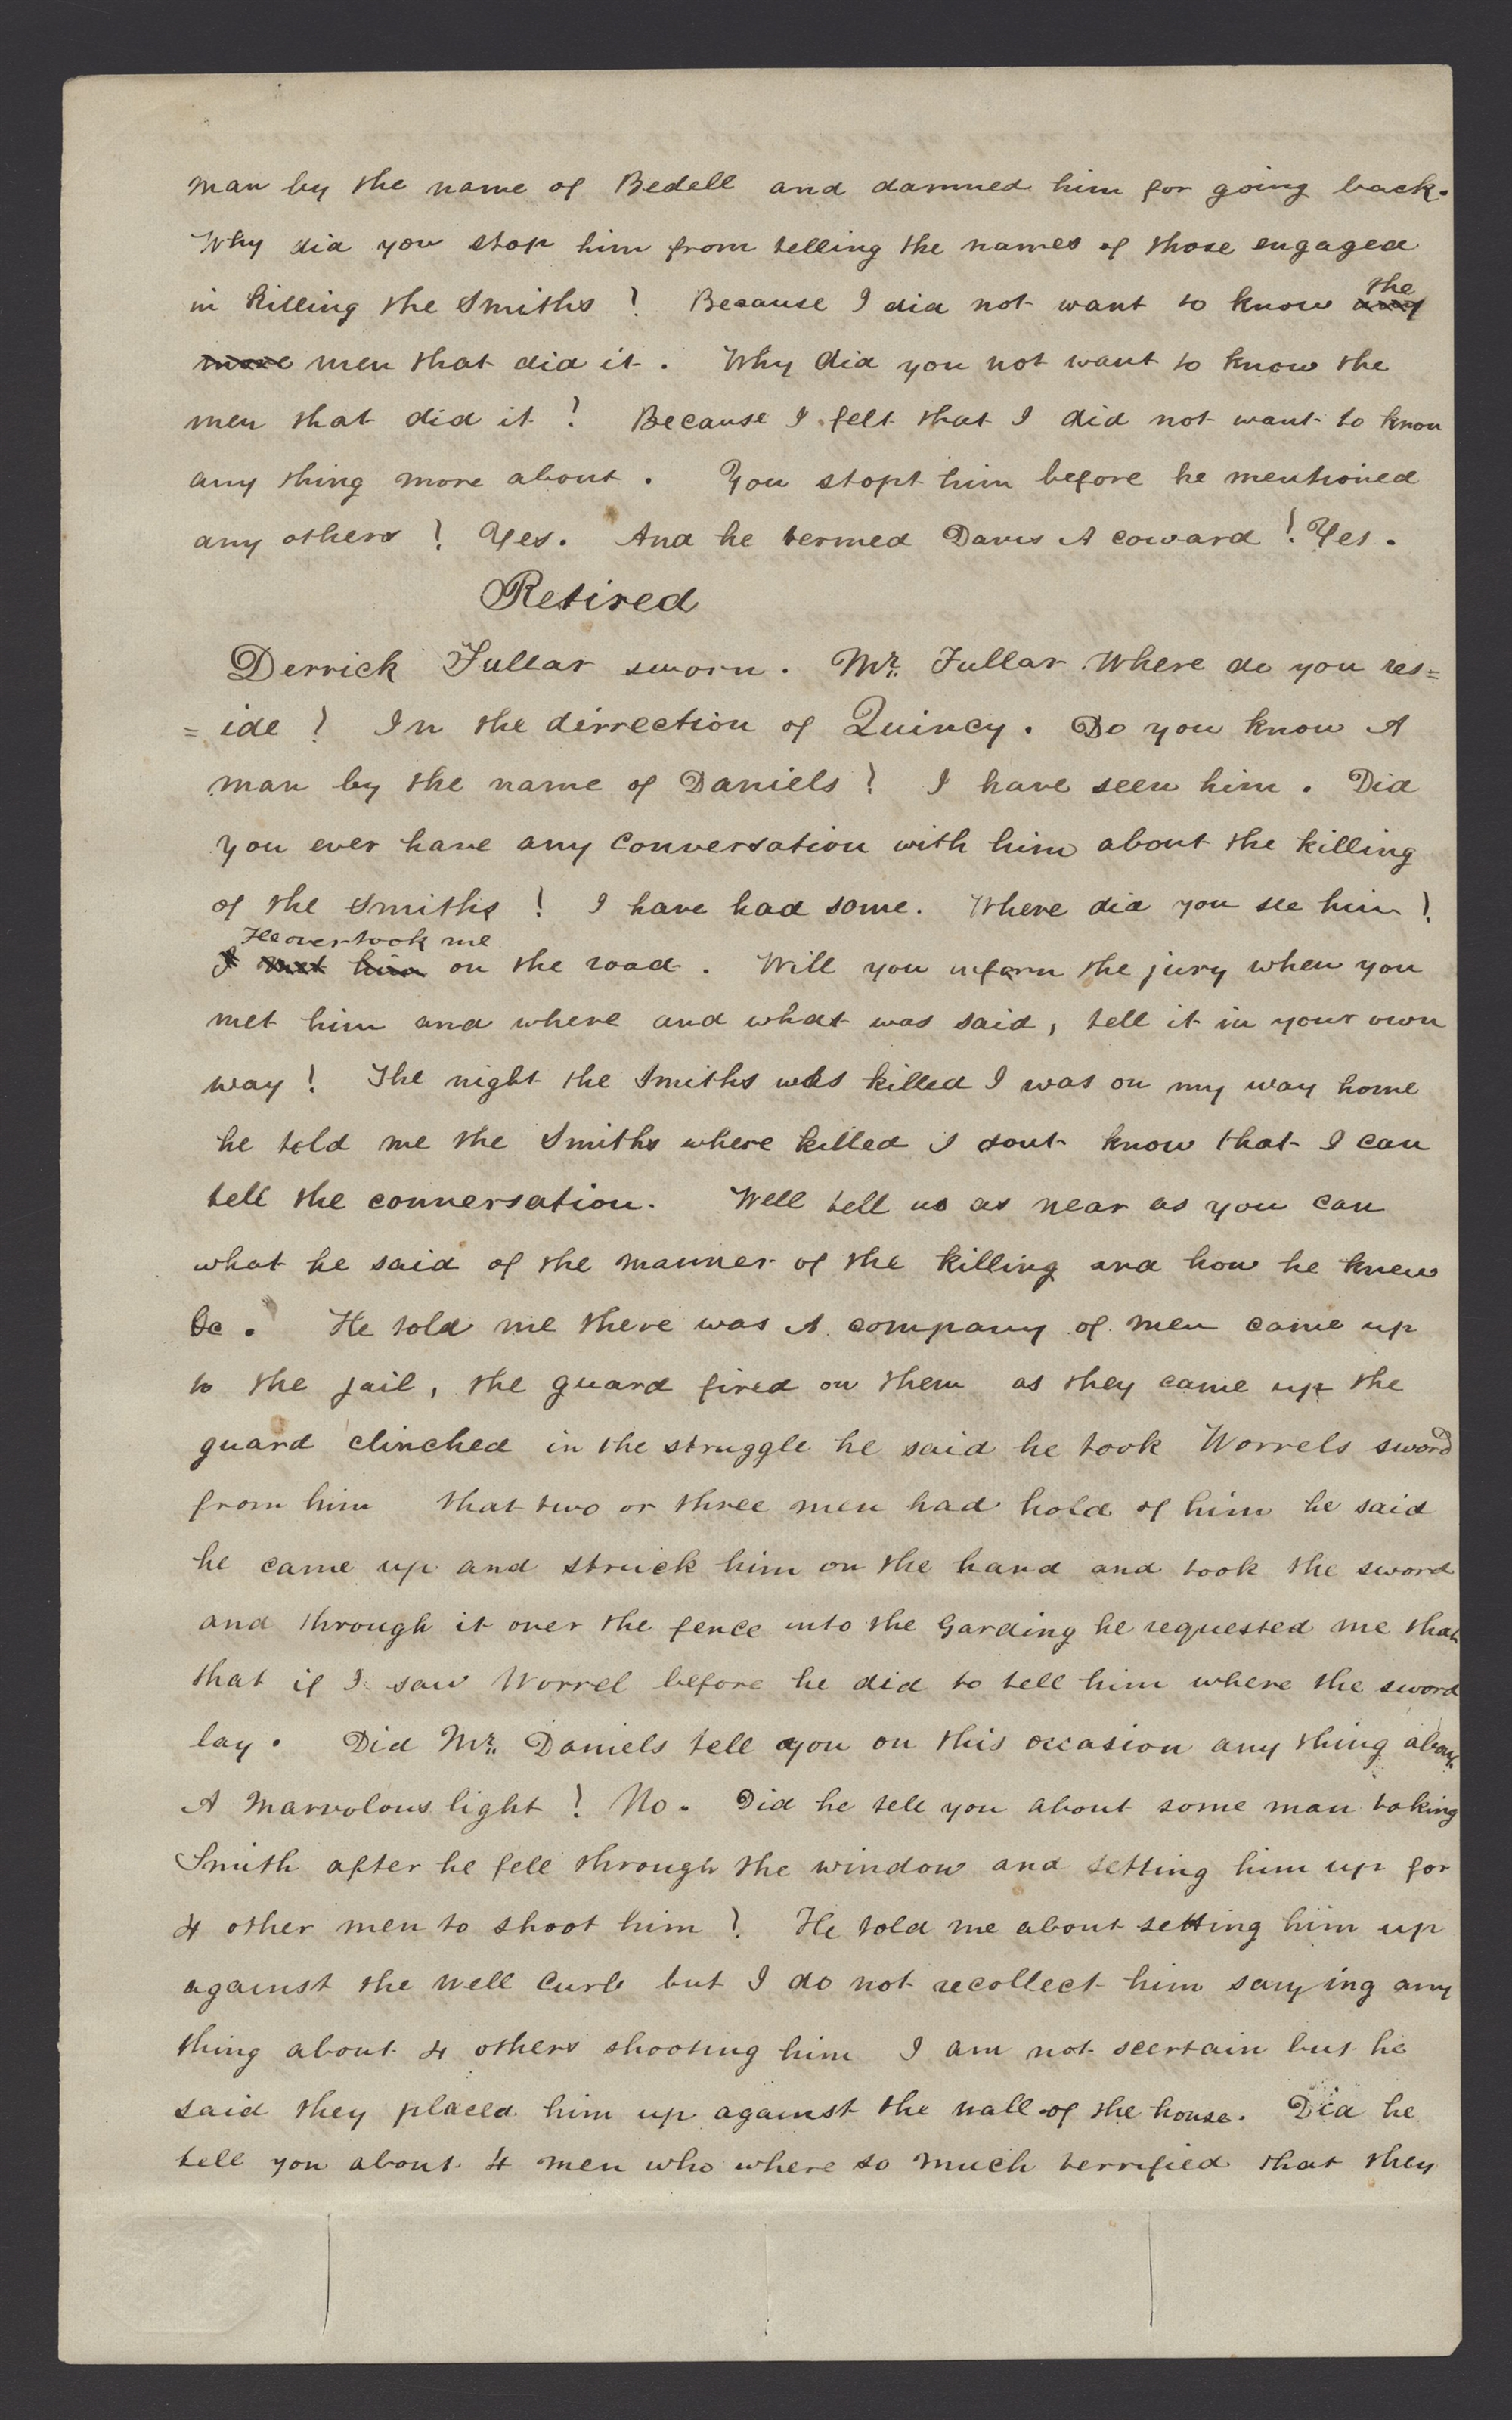 man by the name of Bedell and damned him for going back.
Why did you stop him from telling the names of those engaged
in killing the Smiths ? Because I did not want to know any the
more men that did it . Why did you not want to know the
men that did it ? Because I felt that I did not want to know
any thing more about . You stopt him before he mentioned
any others ? Yes . And he termed Davis A coward ? Yes .
Retired
Derrick Fullar sworn . Mr. Fullar Where do you res=
= ide ? In the dirrection of Quincy . Do you know A
man by the name of Daniels ? I have seen him . Did
you ever have any conversation with him about the killing
of the Smiths ? I have had some . Where did you see him ?
He overtook me
I met him on the road . Will you inform the jury when you
met him and where and what was said , tell it in your own
way ? The night the Smiths was killed I was on my way home
he told me the Smiths where killed I dont know that I can
tell the conversation . Well tell us as near as you can
what he said of the manner of the killing and how he knew
&c . He told me there was A company of men came up
to the jail , the guard fired on them as they came up the
guard clinched in the struggle he said he took Worrels sword
from him that two or three men had hold of him he said
he came up and struck him on the hand and took the sword
and through it over the fence into the Garding he requested me that
that if I saw Worrel before he did to tell him where the sword
lay . Did Mr. Daniels tell you on this occasion any thing about
A marvolous light ? No . Did he tell you about some man taking
Smith after he fell through the window and setting him up for
4 other men to shoot him ? He told me about setting him up
against the well curb but I do not recollect him saying any
thing about 4 others shooting him I am not scertain but he
said they placed him up against the wall of the house . Did he
tell you about 4 men who where so much terrified that they